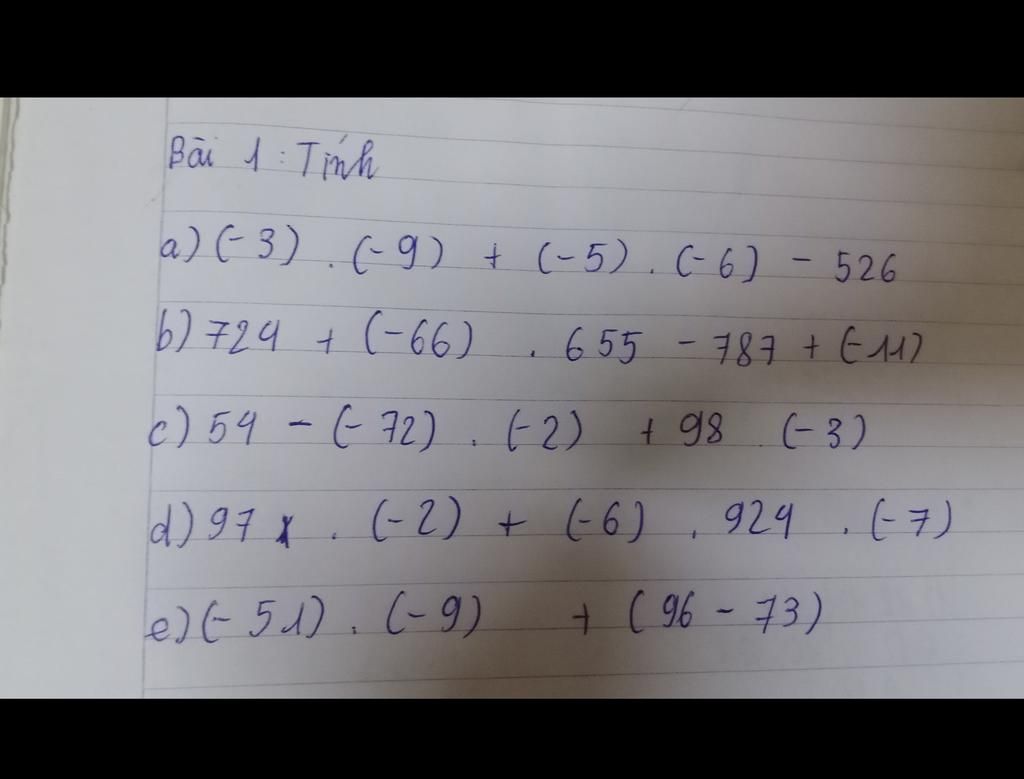 Bài 1: Tính
a) (-3) . (-9) + (-5) . (-6) - 526
b) 724 + (-66) . 655 - 787 + (-11)
c) 54 - (-72) . (-2) + 98 . (-3)
d) 97 . (-2) + (-6) . 924 . (-7)
e) (-51) . (-9) + (96 - 73)